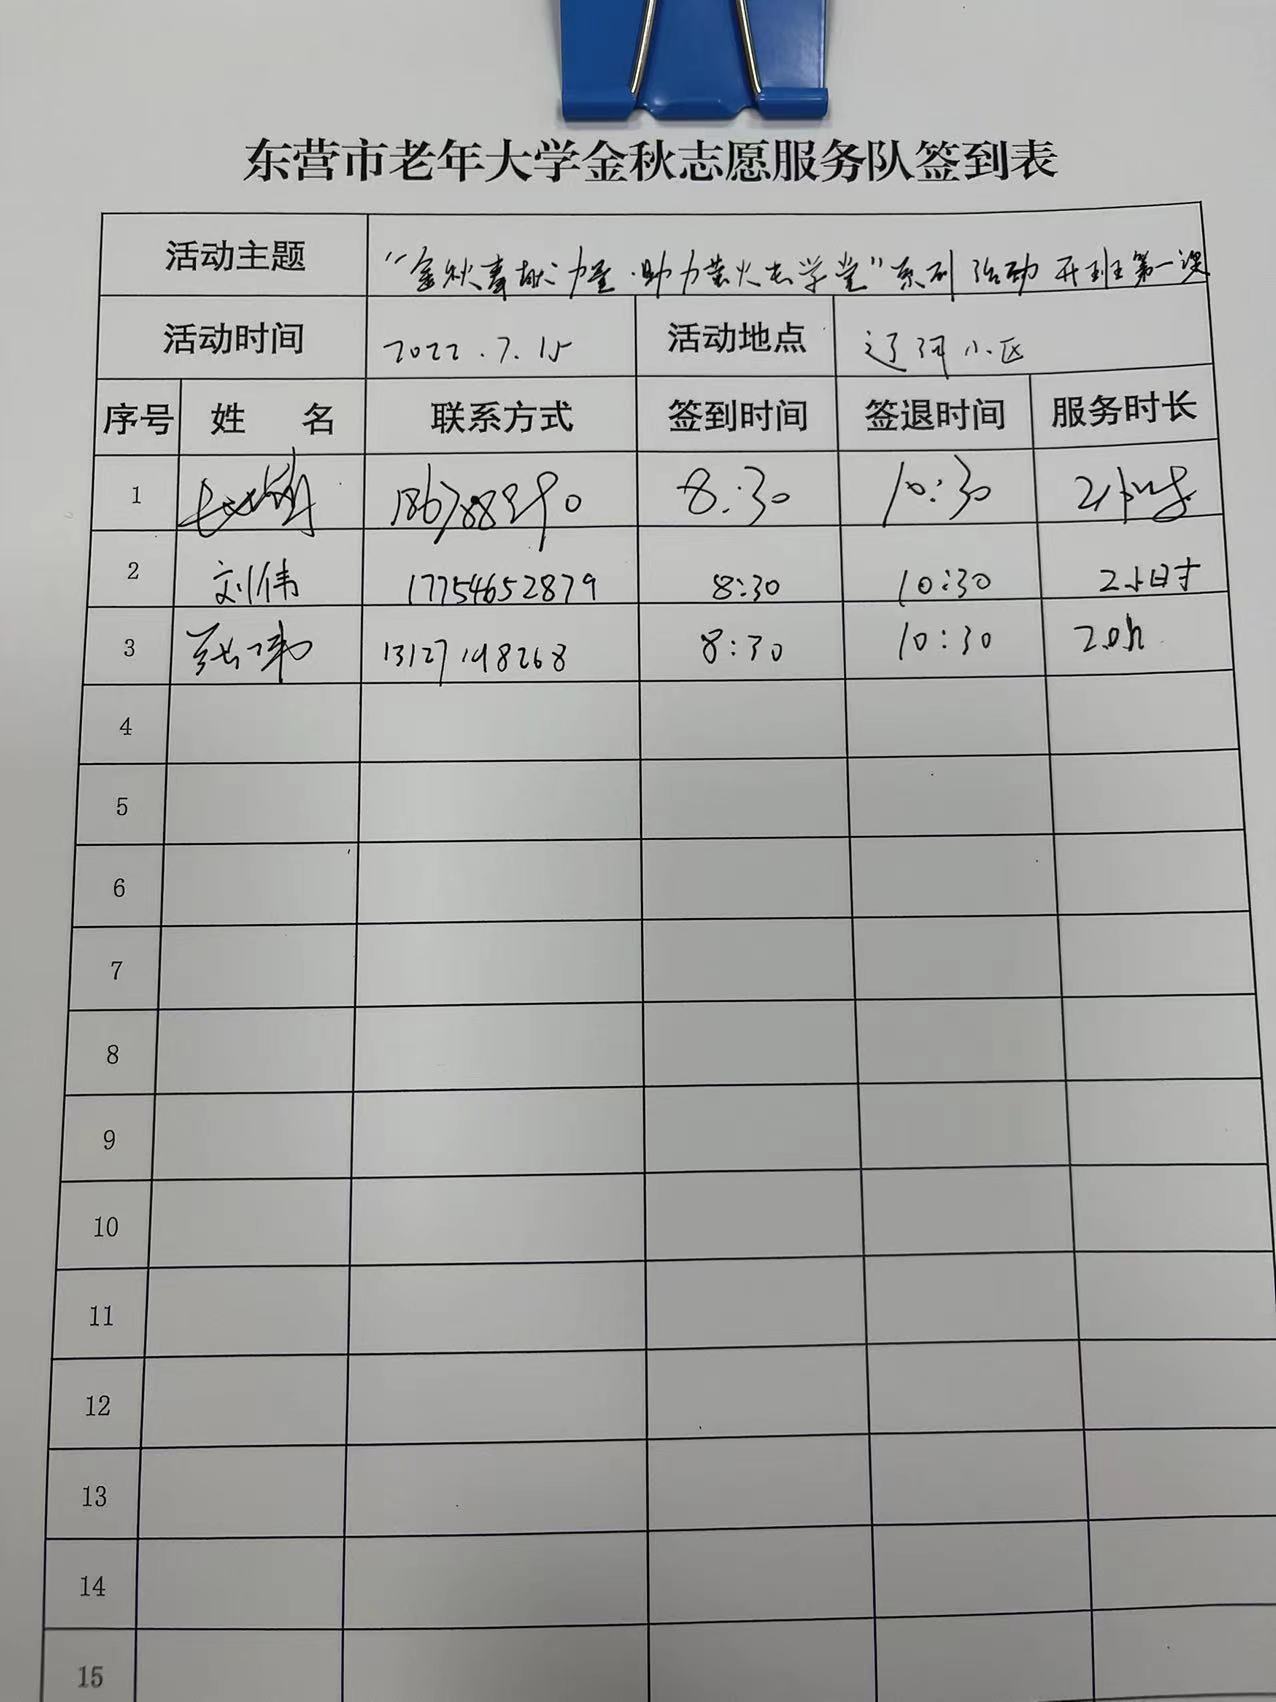 东营市老年大学金秋志愿服务队签到表
活动主题 “金秋奉献力量·助力萤火志学堂”系列活动开班第一课
活动时间 2022.7.15 活动地点 辽河小区
序号 姓 名 联系方式 签到时间 签退时间 服务时长
1 8:30 10:30 2小时
2 刘伟 17754652879 8:30 10:30 2小时
3 13127198268 8:30 10:30
4
5
6
7
8
9
10
11
12
13
14
15